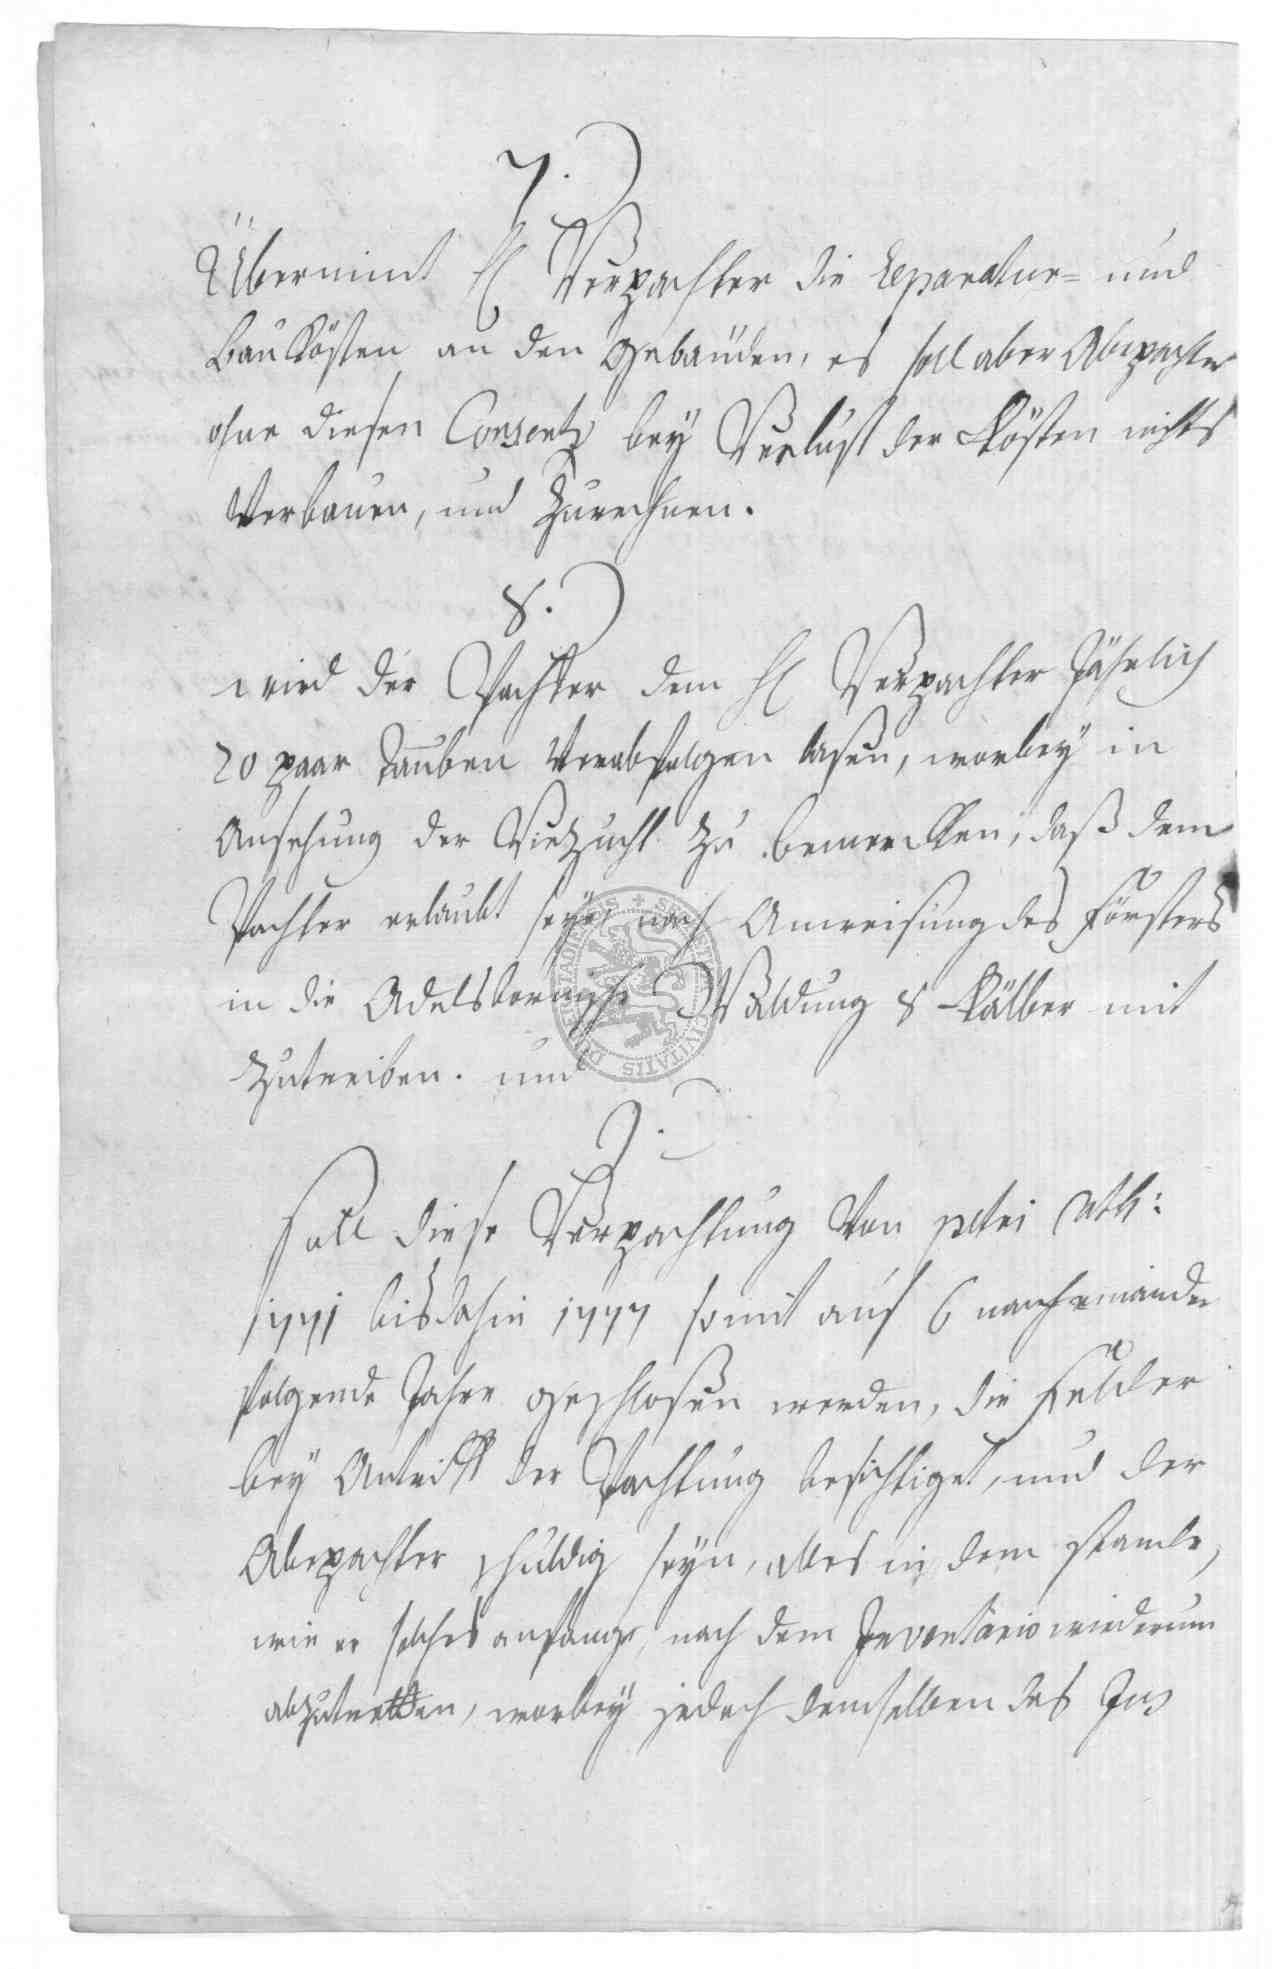 7.
Übernimt H Verpachter die Reparatur= und
Bau Kösten an den Gebäuden, es soll aber Abpachter
ohne diesen Consentz bey Verlust der Kösten nichts
Verbauen, und Zurechnen.
8.
wird der Pachter dem H Verpachter Jährlich
20 paar Tauben Verabfolgen lasen, worbey in
Ansehung der Viezucht zu bemercken, daß dem
Pachter erlaubt seye, nach Anweisung des Försters
in die Adelsbornische Waldung 8 Kälber mit
Zutreiben. und
9.
Soll diese Verpachtung Von petri Cath:
1771 bis dahin 1777 somit auf 6 nach einander
folgende Jahre geschlosen werden, die Felder
bey Antritt der Pachtung besichtiget, und der
Abpachter schuldig seyn, alles in dem stande,
wie er solches anfange, nach dem Inventario wiederum
abzutretten, worbey jedoch demselben das Jus